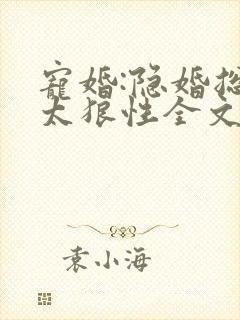 寵婚:隐婚总
太狠性全文
袁小海